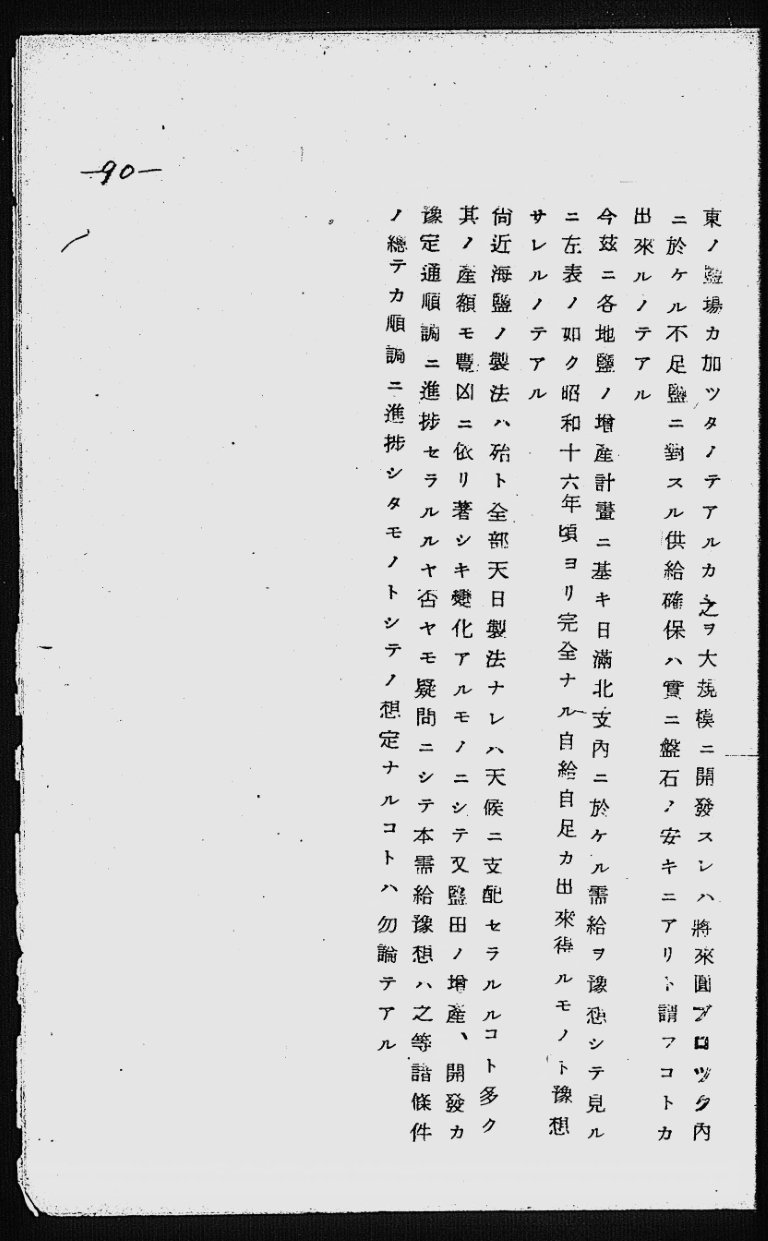 —90—
東ノ鹽場カ加ツタノテアルカ之ヲ大規模ニ開發スレハ將來圓ブロツク內
ニ於ケル不足鹽ニ對スル供給確保ハ實ニ盤石ノ安キニアリト謂フコトカ
出來ルノテアル
今茲ニ各地鹽ノ增產計畫ニ基キ日滿北支內ニ於ケル需給ヲ豫想シテ見ル
ニ左表ノ如ク昭和十六年頃ヨリ完全ナル自給自足カ出來得ルモノト豫想
サレルノテアル
尙近海鹽ノ製法ハ殆ト全部天日製法ナレハ天候ニ支配セラルルコト多ク
其ノ產額モ豐凶ニ依リ著シキ變化アルモノニシテ又鹽田ノ增產、開發カ
豫定通順調ニ進捗セラルルヤ否ヤモ疑問ニシテ本需給豫想ハ之等諸條件
ノ總テカ順調ニ進捗シタモノトシテノ想定ナルコトハ勿論テアル